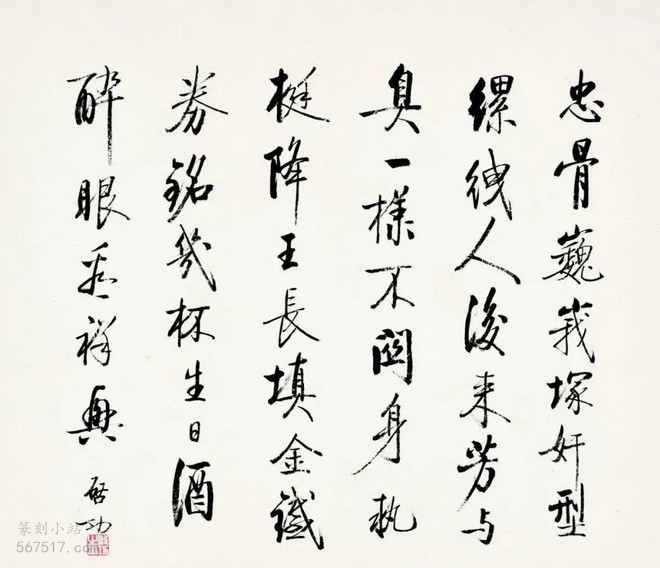 忠骨巍峩塚奸型
縲絏人後来芳与
臭一樣不關身執
梃降王長填金鐵
券銘幾杯生日酒
醉眼看祥興
啟功
篆刻小站
567517.com